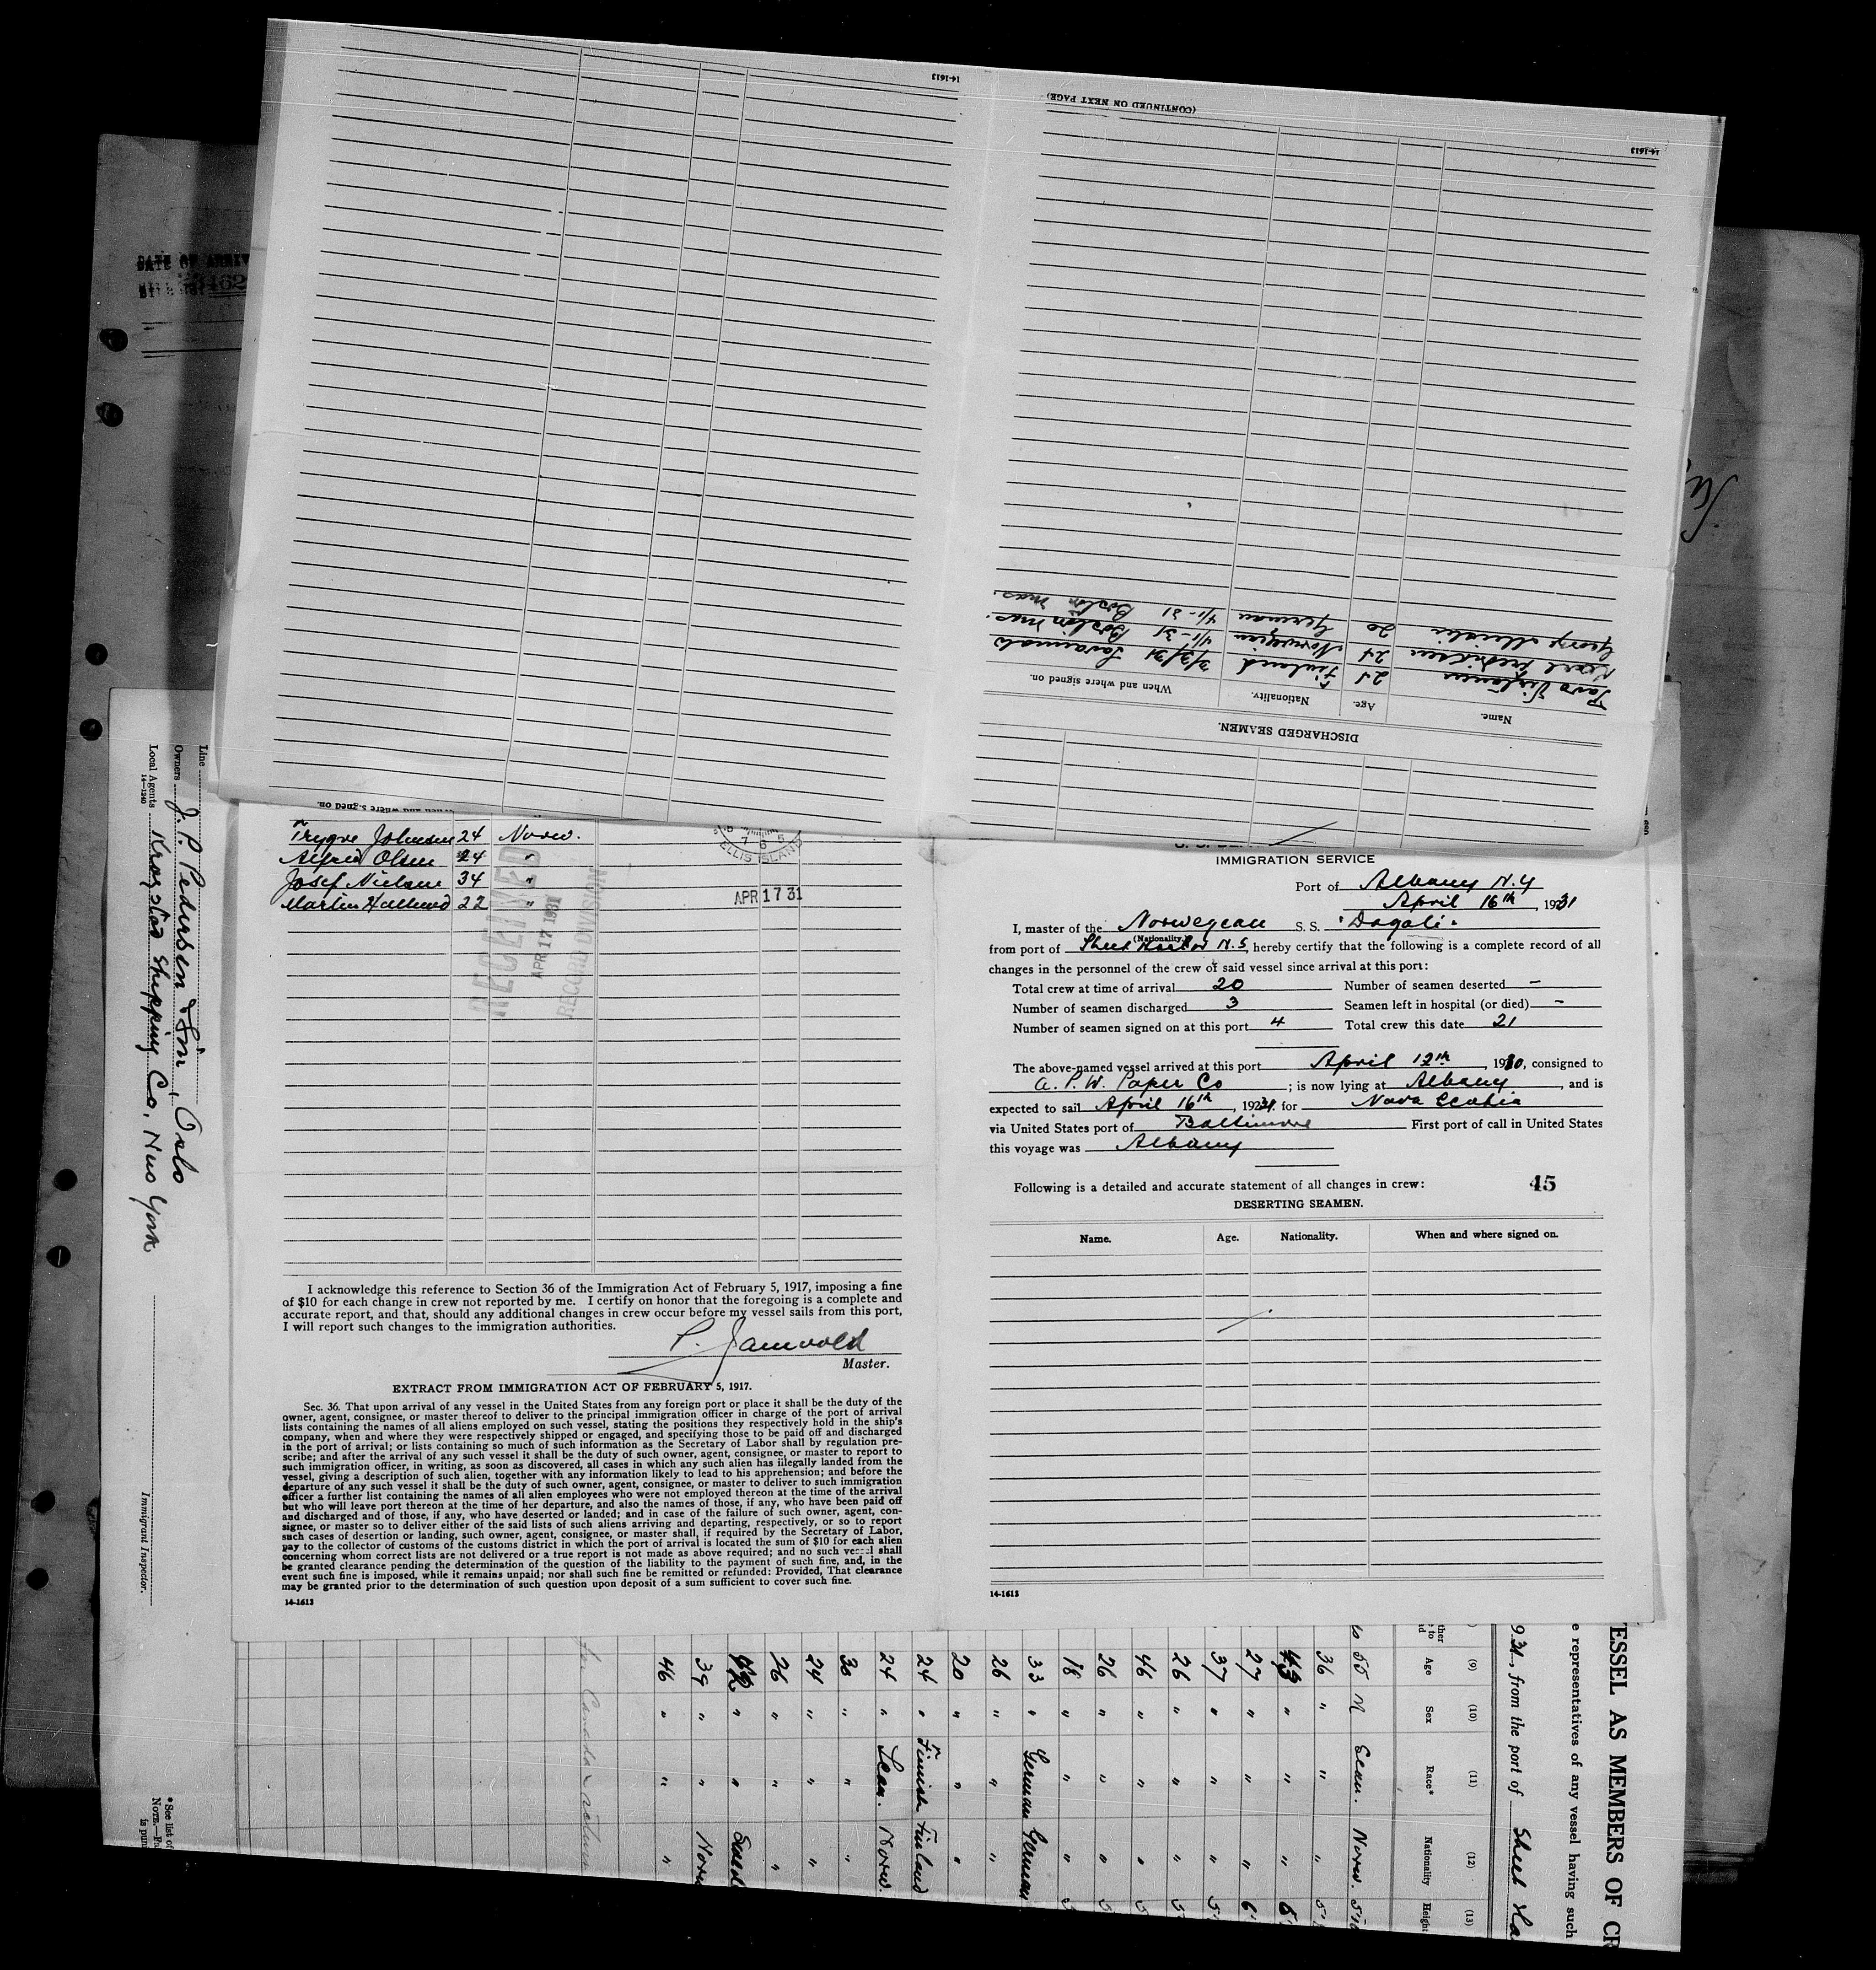 14-1613
(CONTINUED ON NEXT PAGE)
14-1613
DISCHARGED SEAMEN.
Name. Age. Nationality. When and where signed on.
24 Finland 3/3/31
24 Norwegian 4/1-31 Boston
George 20 German 4/1-31 Boston mas.
DATE OF
Line
Owners J. P. Pedersen & Son, Oslo
Local Agents Shipping Co, New York
14-1240
Immigrant Inspector.
When and where signed on.
Trygve Johnsen 24 Norw.
Olsen 24 "
Josef Nielsen 34 "
Martin 22 "
ELLIS ISLAND
APR 17 31
RECEIVED
APR 17 1931
RECORD DIVISION
I acknowledge this reference to Section 36 of the Immigration Act of February 5, 1917, imposing a fine
of $10 for each change in crew not reported by me. I certify on honor that the foregoing is a complete and
accurate report, and that, should any additional changes in crew occur before my vessel sails from this port,
I will report such changes to the immigration authorities.
P.
Master.
EXTRACT FROM IMMIGRATION ACT OF FEBRUARY 5, 1917.
Sec. 36. That upon arrival of any vessel in the United States from any foreign port or place it shall be the duty of the
owner, agent, consignee, or master thereof to deliver to the principal immigration officer in charge of the port of arrival
lists containing the names of all aliens employed on such vessel, stating the positions they respectively hold in the ship's
company, when and where they were respectively shipped or engaged, and specifying those to be paid off and discharged
in the port of arrival; or lists containing so much of such information as the Secretary of Labor shall by regulation pre-
scribe; and after the arrival of any such vessel it shall be the duty of such owner, agent, consignee, or master to report to
such immigration officer, in writing, as soon as discovered, all cases in which any such alien has illegally landed from the
vessel, giving a description of such alien, together with any information likely to lead to his apprehension; and before the
departure of any such vessel it shall be the duty of such owner, agent, consignee, or master to deliver to such immigration
officer a further list containing the names of all alien employees who were not employed thereon at the time of the arrival
but who will leave port thereon at the time of her departure, and also the names of those, if any, who have been paid off
and discharged and of those, if any, who have deserted or landed; and in case of the failure of such owner, agent, con-
signee, or master so to deliver either of the said lists of such aliens arriving and departing, respectively, or so to report
such cases of desertion or landing, such owner, agent, consignee, or master shall, if required by the Secretary of Labor,
pay to the collector of customs of the customs district in which the port of arrival is located the sum of $10 for each alien
concerning whom correct lists are not delivered or a true report is not made as above required; and no such vessel shall
be granted clearance pending the determination of the question of the liability to the payment of such fine, and, in the
event such fine is imposed, while it remains unpaid; nor shall such fine be remitted or refunded: Provided, That clearance
may be granted prior to the determination of such question upon deposit of a sum sufficient to cover such fine.
14-1613
IMMIGRATION SERVICE
Port of Albany N.Y
April 16th, 1931
I, master of the Norwegean S. S. "Dagali"
(Nationality.)
from port of Sheet Harbor N.S, hereby certify that the following is a complete record of all
changes in the personnel of the crew of said vessel since arrival at this port:
Total crew at time of arrival 20 Number of seamen deserted –
Number of seamen discharged 3 Seamen left in hospital (or died) –
Number of seamen signed on at this port 4 Total crew this date 21
The above-named vessel arrived at this port April 12th, 1930, consigned to
A. P. W. Paper Co; is now lying at Albany, and is
expected to sail April 16th, 1931 for Nova Scotia
via United States port of Baltimore First port of call in United States
this voyage was Albany
Following is a detailed and accurate statement of all changes in crew: 45
DESERTING SEAMEN.
Name. Age. Nationality. When and where signed on.
14-1613
ESSEL AS MEMBERS OF CR
e representatives of any vessel having such
931, from the port of Sheet Ha
(9) (10) (11) (12) (13)
Age Sex Race* Nationality Height
55 M Scan. Norw.
36 " " "
43 " " "
27 " " "
37 " " "
26 " " "
46 " " "
26 " " "
18 " " "
33 " German German
26 " " "
20 " " "
24 " Finnish Finland
24 " Scan. Norw.
30 " " "
24 " " "
26 " " "
" "
39 " " Norw
46 " " "
* See list of
NOTE.—Fa
is pun